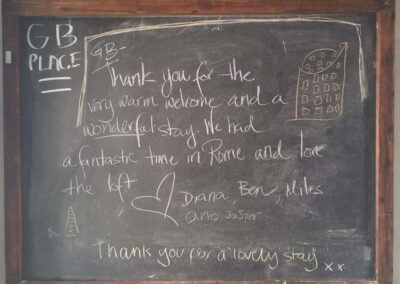 GB
PLACE
GB-
Thank you for the
very warm welcome and a
wonderful stay. We had
a fantastic time in Rome and love
the loft
Diana, Ben, Miles
and Jasper
Thank you for a lovely stay xx